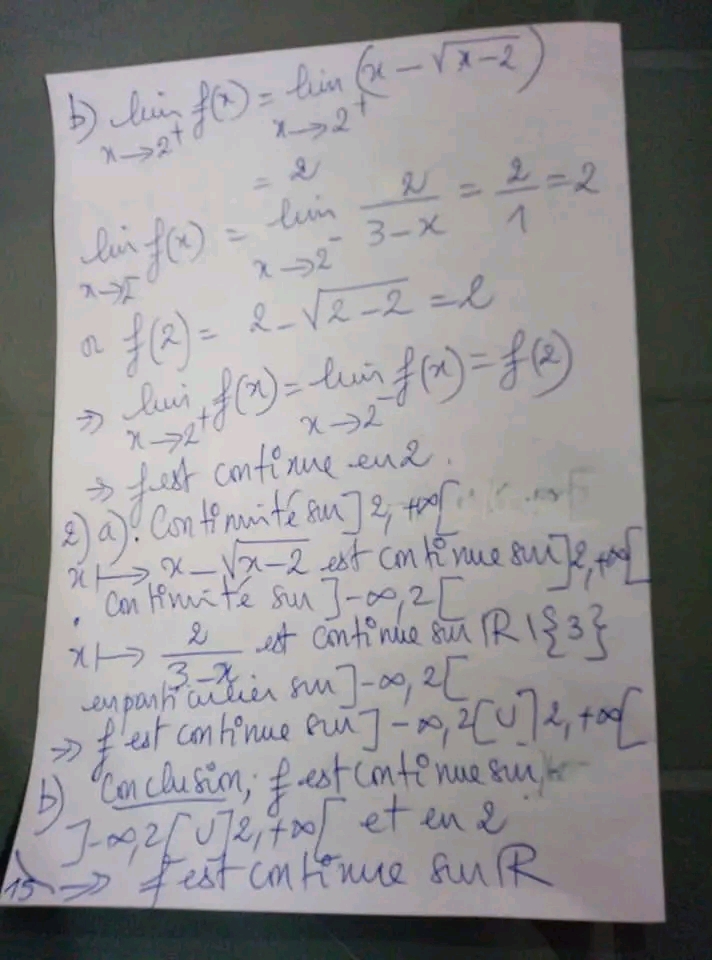 b) lim f(x) = lim (x - √(x-2))
x→2⁺ x→2⁺
= 2
lim f(x) = lim 2/(3-x) = 2/1 = 2
x→2⁻ x→2⁻
or f(2) = 2 - √(2-2) = 2
⇒ lim f(x) = lim f(x) = f(2)
x→2⁺ x→2⁻
⇒ f est continue en 2.
2) a) • Continuité sur ]2, +∞[
x ↦ x - √(x-2) est continue sur ]2, +∞[
• Continuité sur ]-∞, 2[
x ↦ 2/(3-x) est continue sur ℝ \ {3}
en particulier sur ]-∞, 2[
⇒ f est continue sur ]-∞, 2[ ∪ ]2, +∞[
b) Conclusion; f est continue sur
]-∞, 2[ ∪ ]2, +∞[ et en 2
15) ⇒ f est continue sur ℝ